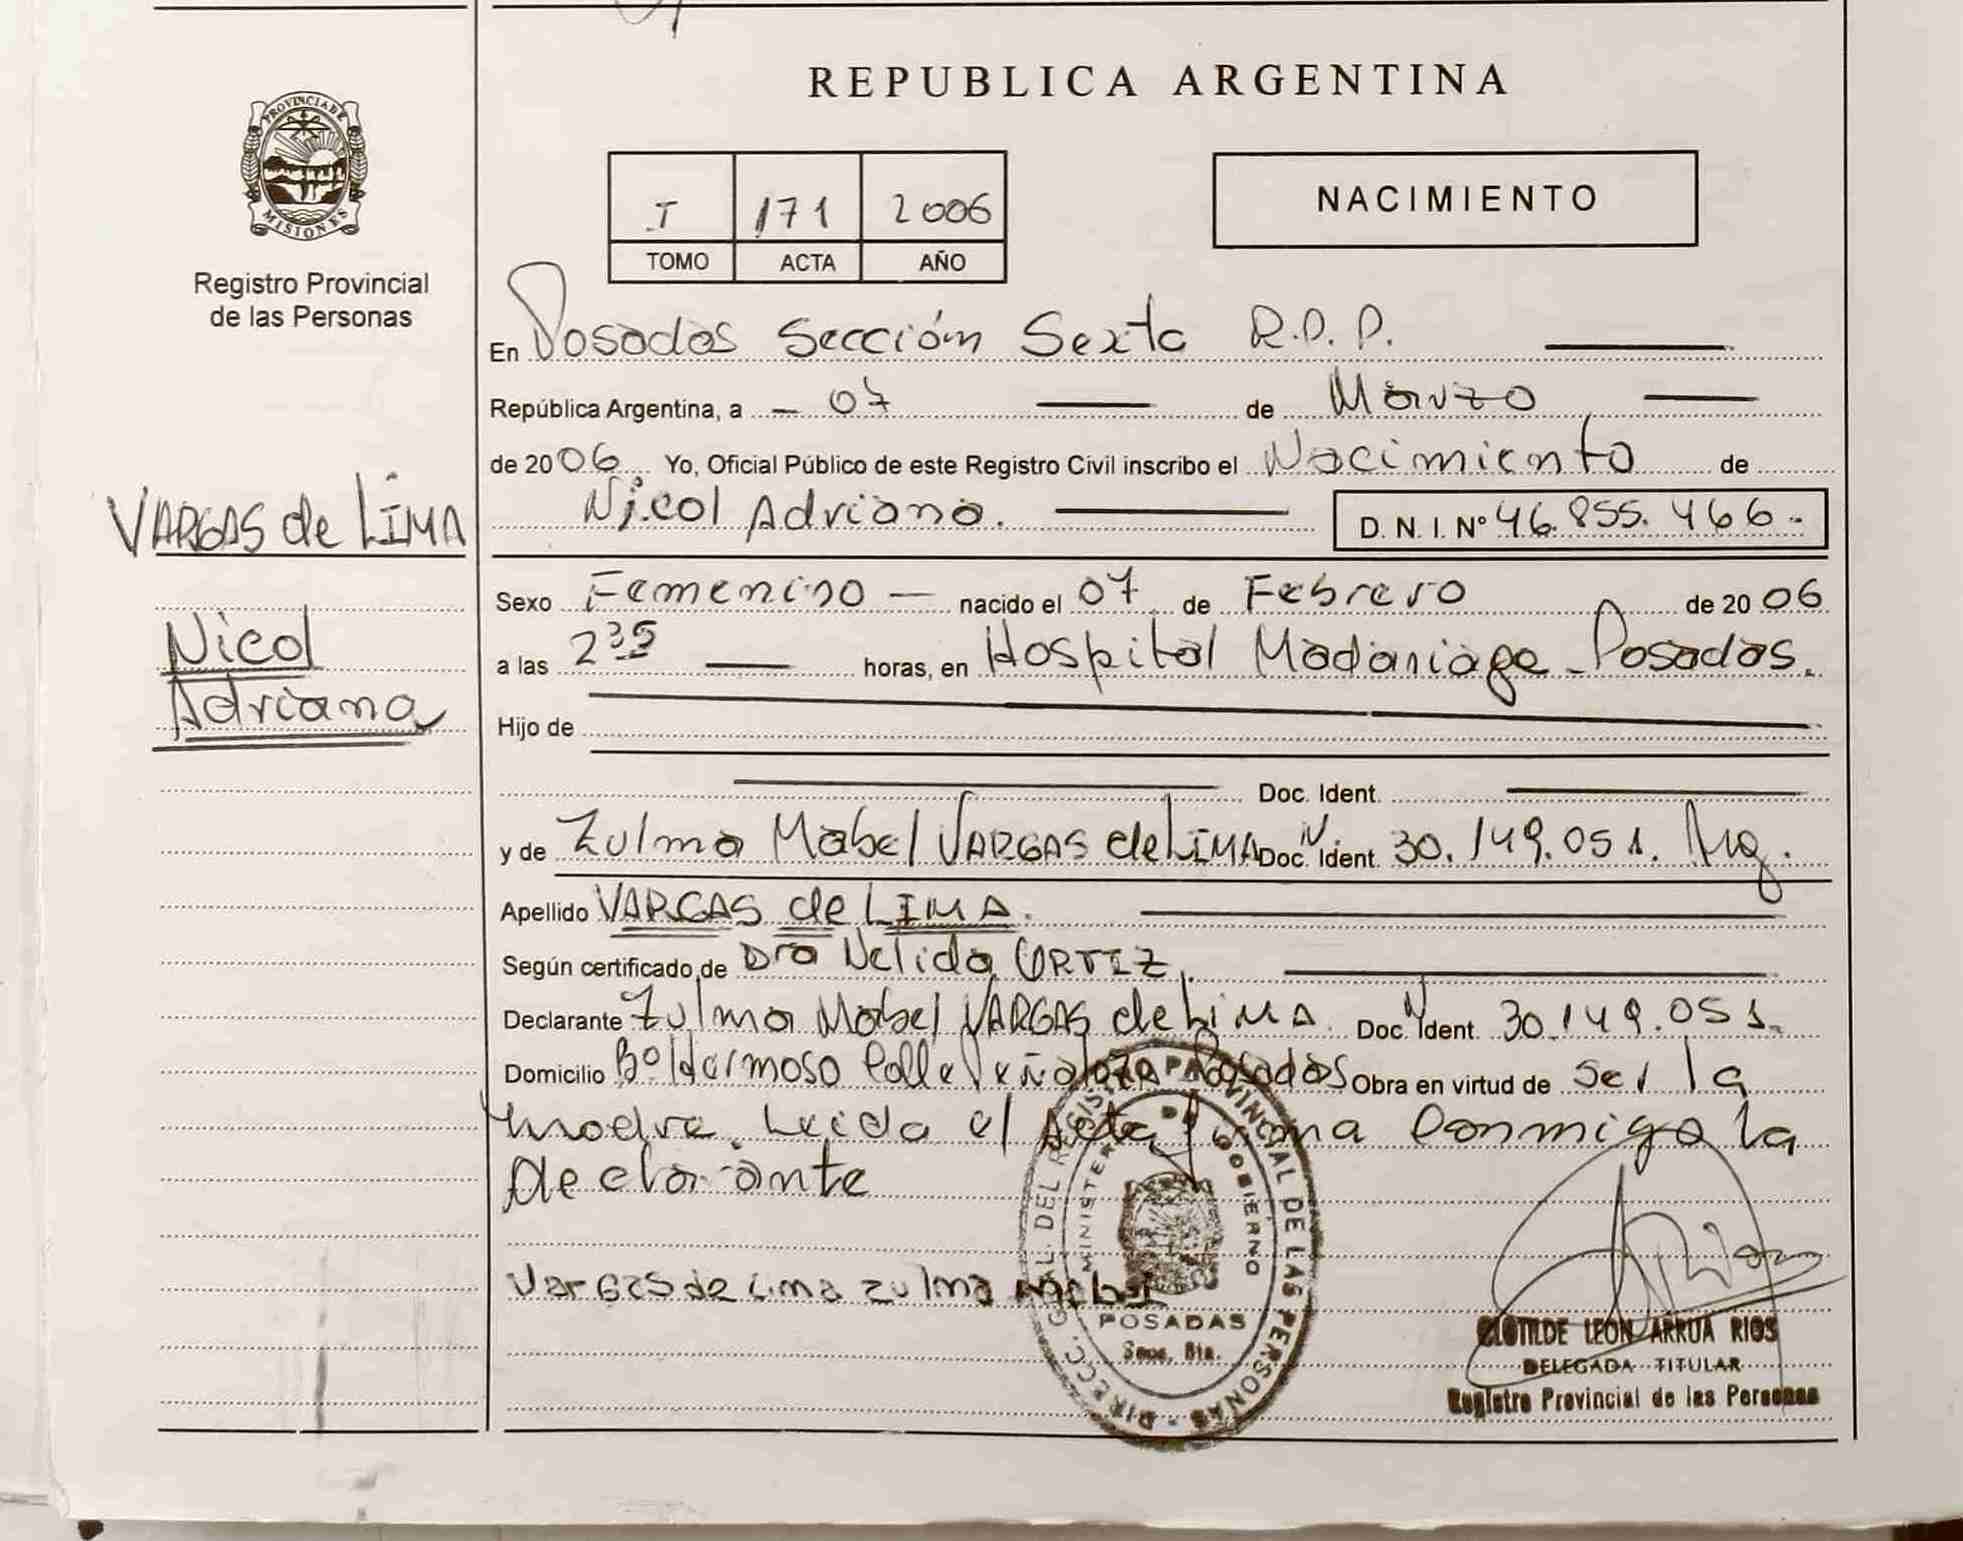 REPUBLICA ARGENTINA
PROVINCIA DE MISIONES
Registro Provincial
de las Personas
I 171 2006
TOMO ACTA AÑO
NACIMIENTO
En Posadas Sección Sexta R.P.P.
República Argentina, a 07 de Marzo
de 2006 Yo, Oficial Público de este Registro Civil inscribo el Nacimiento de
Nicol Adriana. D. N. I. Nº 46.855.466.-
VARGAS de LIMA
Nicol
Adriana
Sexo Femenino nacido el 07 de Febrero de 2006
a las 2 35 horas, en Hospital Madariaga - Posadas.
Hijo de
Doc. Ident.
y de Zulma Mabel VARGAS de LIMA Doc. Ident. N 30.149.051. Arg.
Apellido VARGAS de LIMA.
Según certificado de Dra Nelida ORTIZ.
Declarante Zulma Mabel VARGAS de LIMA Doc. Ident. N 30.149.051.
Domicilio Bº Hermoso Calle Peñaloza Posadas Obra en virtud de ser la
madre. Leida el Acta firma Conmigo la
declarante
Vargas de Lima Zulma Mabel
DIRECC. GRAL. DEL REGISTRO PROVINCIAL DE LAS PERSONAS
MINISTERIO DE GOBIERNO
POSADAS
Secc. 6ta.
CLOTILDE LEON ARRUA RIOS
DELEGADA TITULAR
Registro Provincial de las Personas